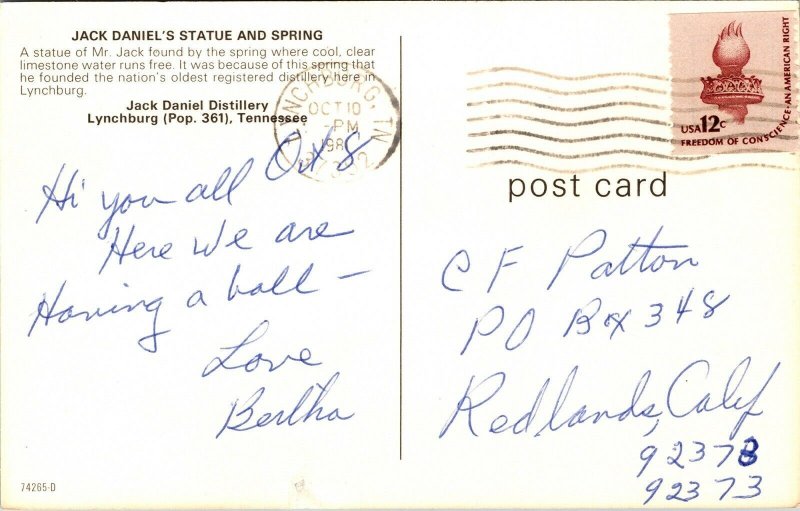 JACK DANIEL'S STATUE AND SPRING
A statue of Mr. Jack found by the spring where cool, clear
limestone water runs free. It was because of this spring that
he founded the nation's oldest registered distillery here in
Lynchburg.
Jack Daniel Distillery
Lynchburg (Pop. 361), Tennessee
LYNCHBURG, TN
OCT 10
-PM
198
37352
USA 12c
FREEDOM OF CONSCIENCE-AN AMERICAN RIGHT
post card
Oct 8
Hi you all
Here We are
Having a ball —
Love
Bertha
C F Patton
PO Box 348
Redlands, Calif
92373
92373
74265-D